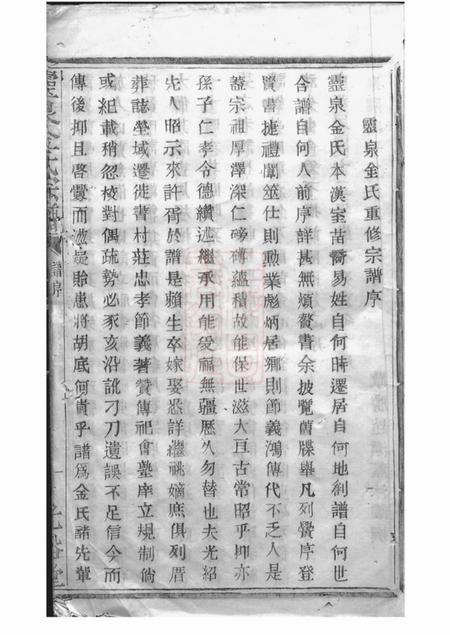 靈泉金氏重修宗譜序
靈泉金氏本漢室苗裔易姓自何時遷居自何地創譜自何世
合譜自何人前序詳甚無煩贅書余披覽舊牒舉凡列黌序登
賢書捷禮闈筮仕則勲業彪炳居鄉則節義鴻傳代不乏人是
蓋宗祖厚澤深仁磅礴蘊積故能保世滋大亘古常昭乎抑亦
孫子仁孝令德纘述繼承用能受福無疆歷久勿替也夫光紹
先人昭示來許胥於譜是賴生卒嫁娶悉詳繼祧嫡庶俱列厝
葬誌塋域遷徙書村莊忠孝節義著贊傳祀會塾庠立規制倘
或紀載稍忽校對偶疏勢必豕亥沿訛刁刀遺誤不足信今而
傳後抑且啓釁而滋貽患將胡底何貴乎譜爲金氏諸先輩
譜序
一